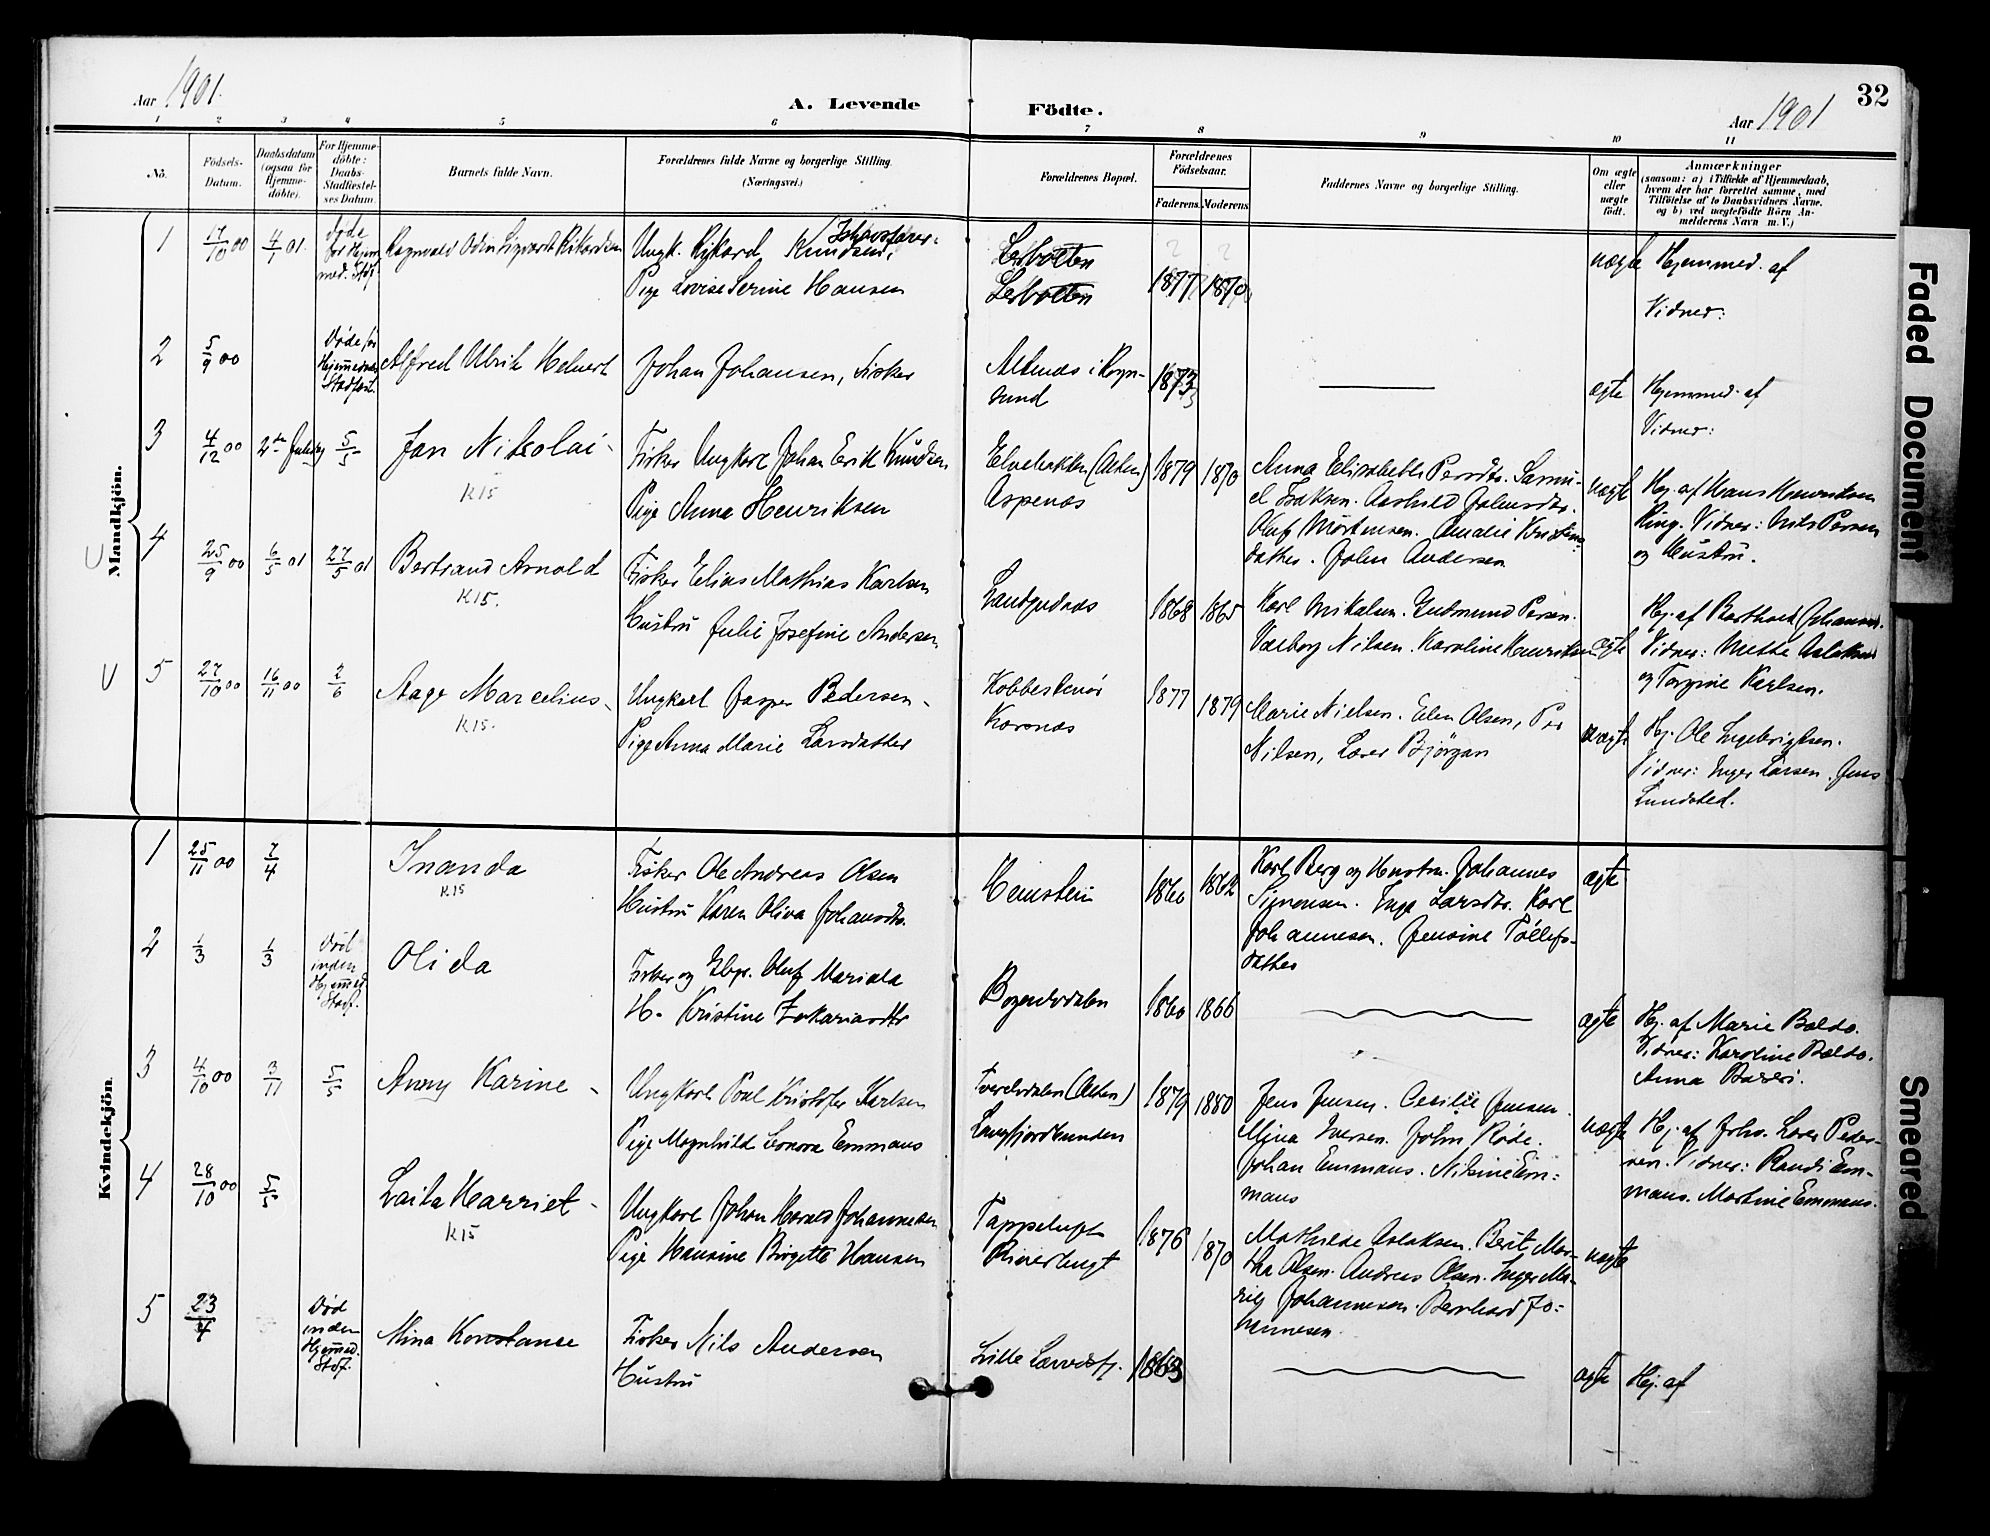 Aar 1901.
A. Levende Födte.
Aar 1901
32
1 2 3 4 5 6 7 8 9 10 11
No.
Födsels-Datum.
Daabsdatum (ogsaa for Hjemme-döbte).
For Hjemme-döbte: Daabs-Stadfæstel-ses Datum.
Barnets fulde Navn.
Forældrenes fulde Navne og borgerlige Stilling. (Næringsvei.)
Forældrenes Bopæl.
Forældrenes Födselsaar.
Faderens. Moderens.
Faddernes Navne og borgerlige Stilling.
Om ægte eller uægte födt.
Anmærkninger
(saasom: a) i Tilfælde af Hjemmedaab,
hvem der har forrettet samme, med
Tilföielse af to Daabsvidners Navne.
og b) ved uægtefödte Börn An-
melderens Navn m. V.)
Mandkjön.
1 17/10 00 4/1 01. Döde før Hjemmed. Stdf. Ragnvald Odin Sigvart Rikardsen Ungk. Rikard Knudsen,
Pige Lovise Serine Hansen
Lerbotten
Lerbotten
1877 1870 uægte Hjemmed. af
Vidner:
2 5/9 00 Døde før Hjemmedaab Stadfæst. Alfred Ulrik Helmert Johan Johansen, Fisker
Altenes i Rogn-
sund
1873 ægte Hjemmed. af
Vidner:
3 4/12 00 2den Juledag 5/5 Jan Nikolai
K15
Fisker Ungkarl Johan Erik Knudsen
Pige Anna Henriksen
Elvebakken (Alten)
Aspenæs
1879 1870
Anna Elisabeth Persdtr. Samu-
el Isaksen. Aashild Johnsdtr.
Oluf Mortensen. Amalie Kristine-
datter. John Andersen
uægte
Hj. af Hans Henriksen
Ring. Vidner: Nils Persen
og Hustru.
4 25/9 00 6/5 01 27/5 01 Bertrand Arnold
K15.
Fisker Elias Mathias Karlsen
Hustru Julie Josefine Andersen
Sandgudnæs
1868 1865
Karl Mikalsen. Gudmund Persen.
Valborg Nilsen. Karoline Henriksen
ægte
Hj. af Barthold Johansen.
Vidner: Mette Aslaksen
og Torgine Karlsen.
5 27/10 00 16/11 00 2/6 Aage Marcelius
K15.
Ungkarl Jasper Pedersen
Pige Anna Marie Larsdatter
Kobbeskenør
Korsnæs
1877 1879
Marie Nielsen. Elen Olsen, Per
Nilsen, Lærer Bjørgan
uægte
Hj. Ole Ingebrigtsen.
Vidner: Inger Larsen. Jens
Lundsted.
Kvindekjön.
1 25/11 00 7/4 Inanda
K15
Fisker Ole Andreas Olsen
Hustru Karen Oliva Johansdtr.
1860 1862
Karl Berg og Hustru. Johannes
Simonsen. Inga Larsdtr. Karl
Johannesen. Jensine Tollefs-
datter
ægte
2 1/3 1/3 Död inden Hjemmed. Stdf. Olida
Fisker og Gbr. Oluf Mariala
H. Kristine Zakariasdtr
Bognelvdalen
1860 1866 ægte
Hj. af Marie Boldo.
Vidner: Karoline Baldo.
Anna Bareri.
3 4/10 00 3/11 5/5 Anny Karine
Ungkarl Poul Kristofer Karlsen
Pige Magnhild Leonora Emmaus
Tverelvdalen (Alten)
Langfjordbunden
1879 1880
Jens Jensen. Cecilie Jensen.
Mina Iversen. John Røde.
Johan Emmaus. Nikine Em-
maus
uægte
Hj. af Joh. Lærer Peder-
sen. Vidner: Randi Em-
maus. Martine Emmaus.
4 28/10 00 5/5 Laila Harriet
K15
Ungkarl Johan Harald Johannesen
Pige Hansine Birgitte Hansen
Tappeluft
Riverbugt
1876 1870
Mathilde Aslaksen. Berit Mar-
tha Olsen. Andreas Olsen. Inger Ma-
rie Johannesen. Bernhard Jo-
hannesen.
uægte
5 23/4 Död inden Hjemmed. Stdf. Mina Konstanse
Fisker Nils Andersen
Hustru
Lille Lerresfj. 1863 ægte Hj. af
Faded Document
Smeared